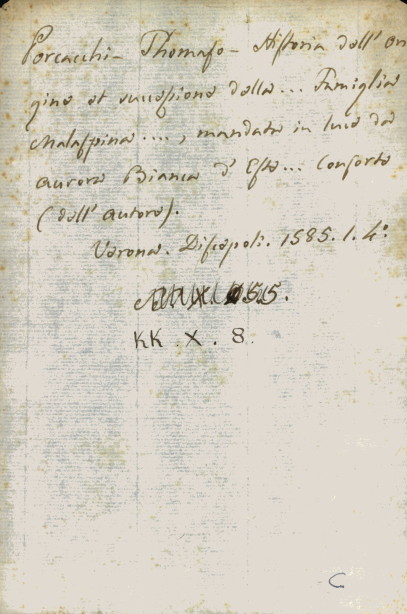 Porcacchi - Thomaso - Historia dell' ori
gine et successione della ... Famiglia
Malaspina ...., mandata in luce da
Aurora Bianca d' Este ... Consorte
(dell' autore).
Verona. Discepoli. 1585. 1. 4°.
55.
KK. X. 8.
C